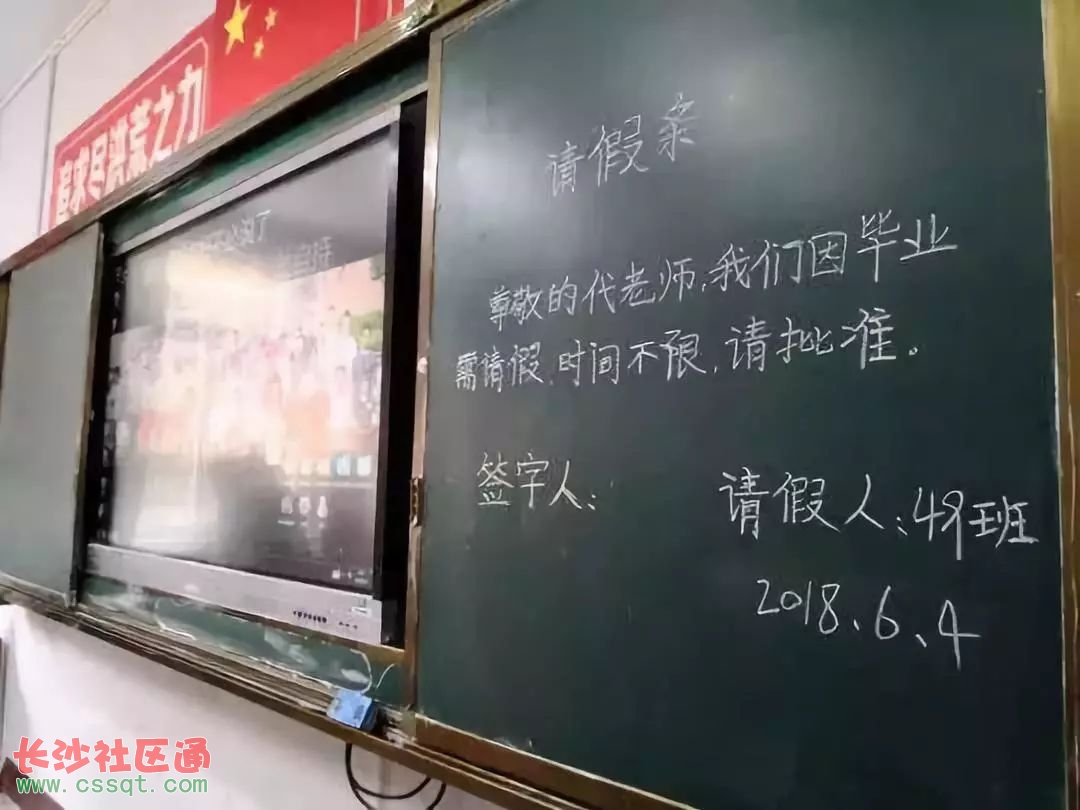 尽洪荒之力
请假条
尊敬的代老师,我们因毕业
需请假,时间不限,请批准。
签字人:
请假人:49班
2018、6、4
长沙社区通
www.cssqt.com